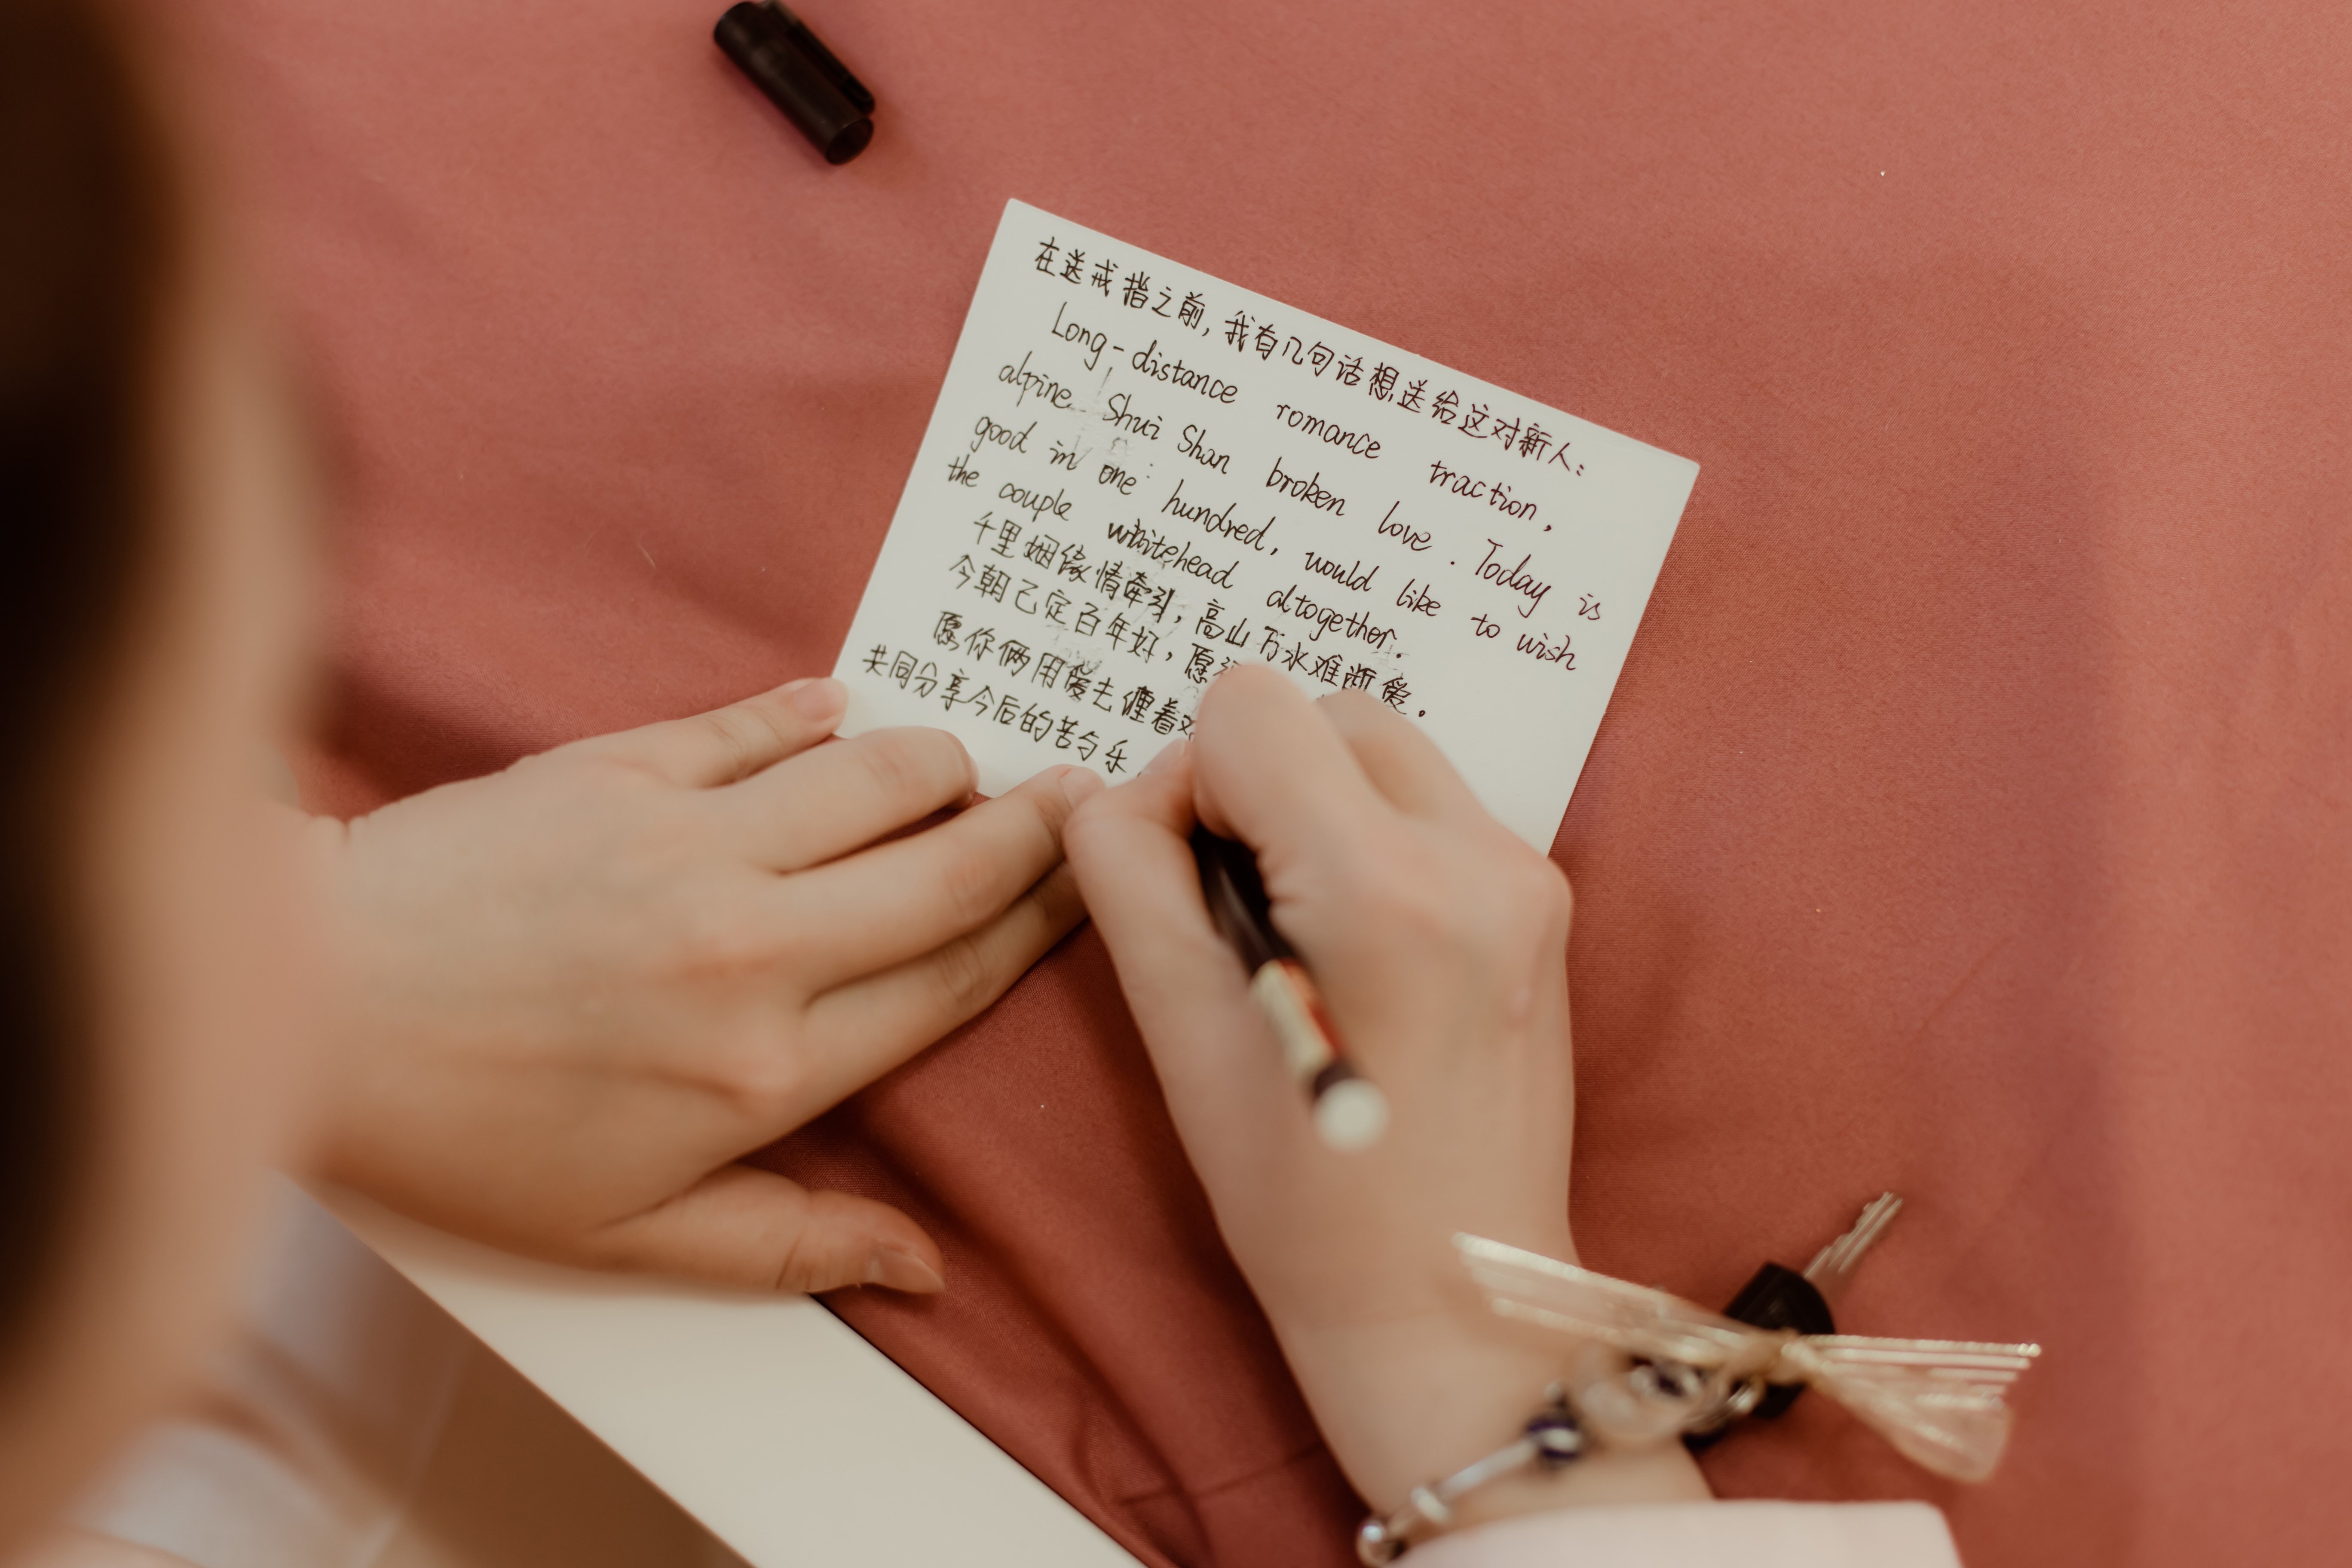 在送戒指之前，我有几句话想送给这对新人：
Long-distance romance traction,
alpine Shui Shan broken love. Today is
good in one hundred, would like to wish
the couple whitehead altogether.
千里姻缘情牵引，高山万水难断爱。
今朝已定百年好，愿
愿你俩用爱去缠着对
共同分享今后的苦与乐